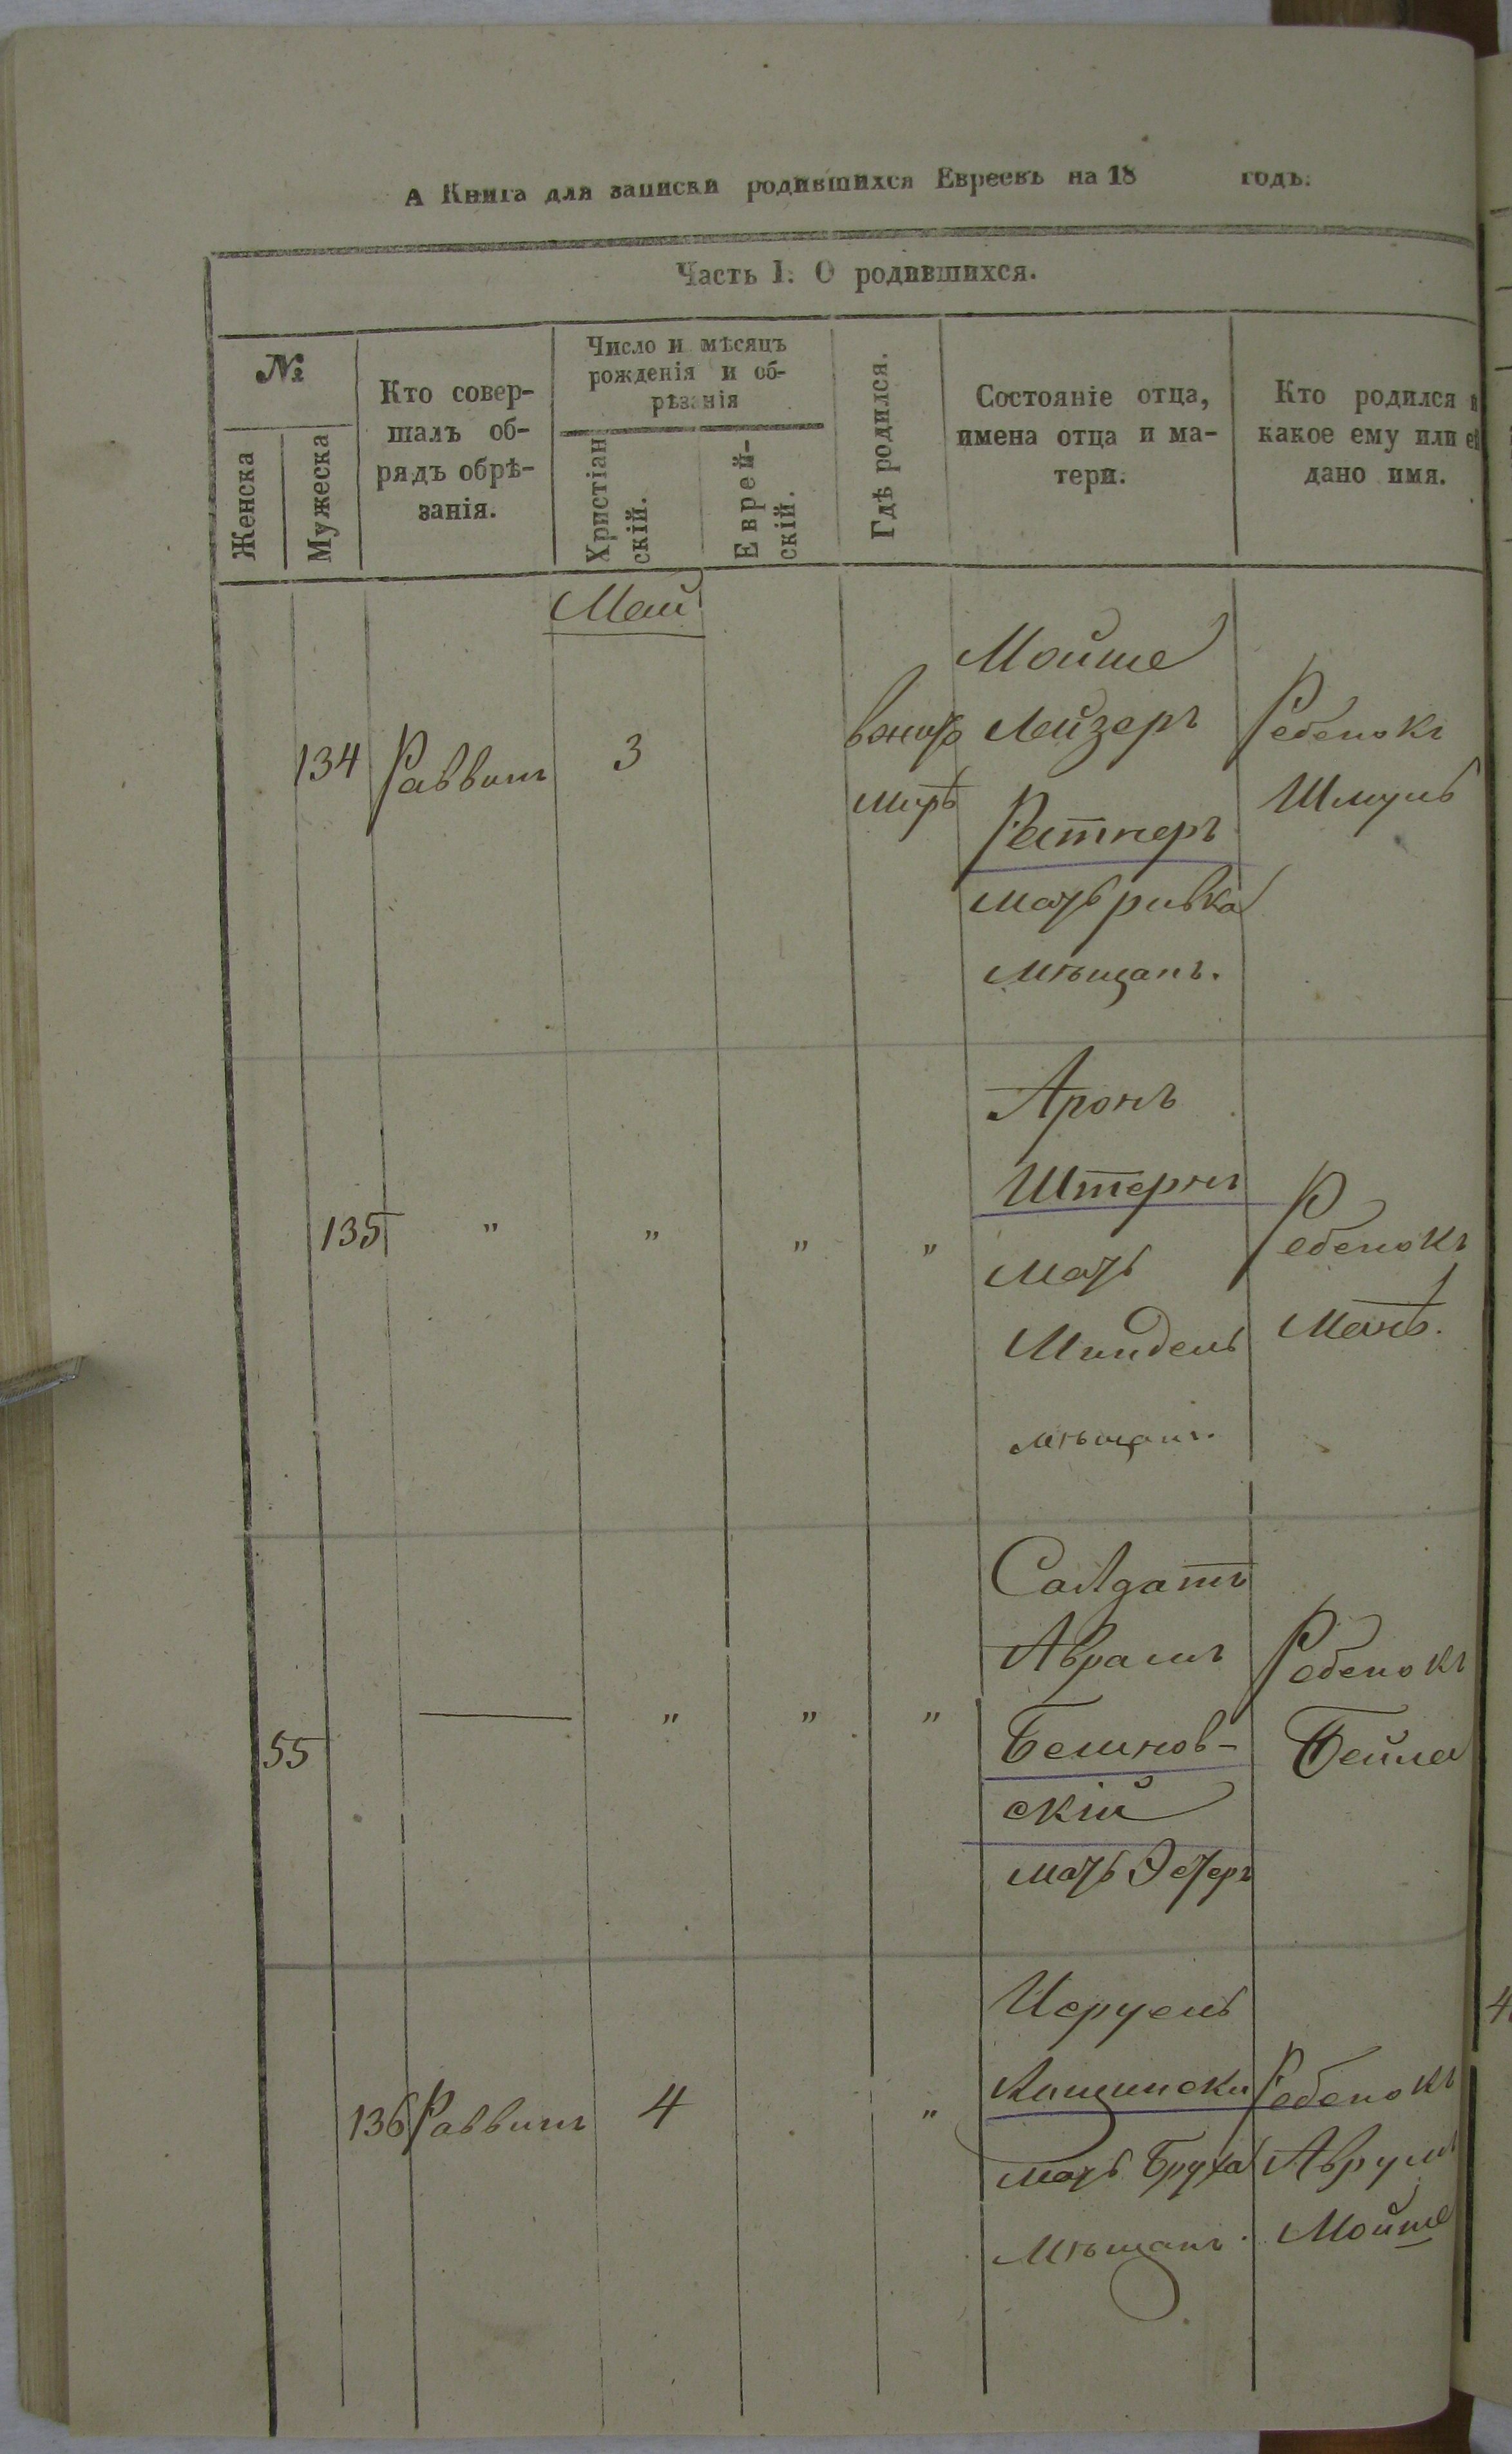 А Книга для записки родившихся Евреевъ на 18 годъ.
Часть I. О родившихся.
№
Женска
Мужеска
Кто совер-
шалъ об-
рядъ обрѣ-
занія.
Число и мѣсяцъ
рожденія и об-
рѣзанія
Христіан
скій.
Еврей-
скій.
Гдѣ родился.
Состояніе отца,
имена отца и ма-
тери.
Кто родился и
какое ему или ей
дано имя.
Май
134
Раввинъ
3
вжито
мирѣ
Мойше
Лейзеръ
Ратнеръ
мать ривка
мѣщанъ.
Ребенокъ
Шмуль
135
"
"
"
"
Аронъ
Штернъ
мать
Миндель
мѣщанъ.
Ребенокъ
55
"
"
"
Салдатъ
Аврамъ
скій
мать Эстеръ
Ребенокъ
Бейла
136
Раввинъ
4
"
Исруель
мать Бруха
мѣщанъ.
Ребенокъ
Аврумъ
Мойше